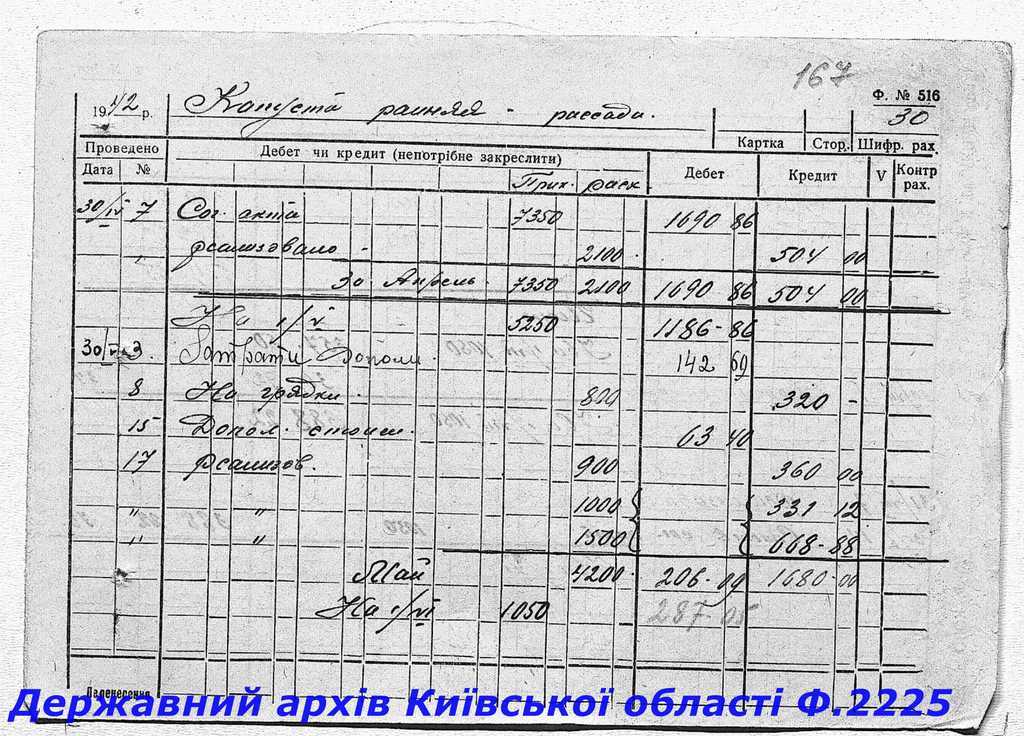 167
Ф. № 516
1942 р. Капуста ранняя - рассада. 30
Картка Стор. Шифр. рах.
Проведено Дебет чи кредит (непотрібне закреслити) Дебет Кредит V Контр рах.
Дата № Прих. расх.
30/IV 7 Сог. акта 7350 1690 86
" реализовано - 2100 504 00
За Апрель 7350 2100 1690 86 504 00
На 1/V 5250 1186-86
30/V 3 Затрати Дополн. 142 69
8 На грядки 800 320 -
15 Допол. стоим. 63 40
17 реализов. 900 360 00
" " 1000 331 12
" " 1500 668-88
Май 4200 206-09 1680-00
На 1/VI 1050 287-05
Перенесення
Державний архів Київської області Ф.2225